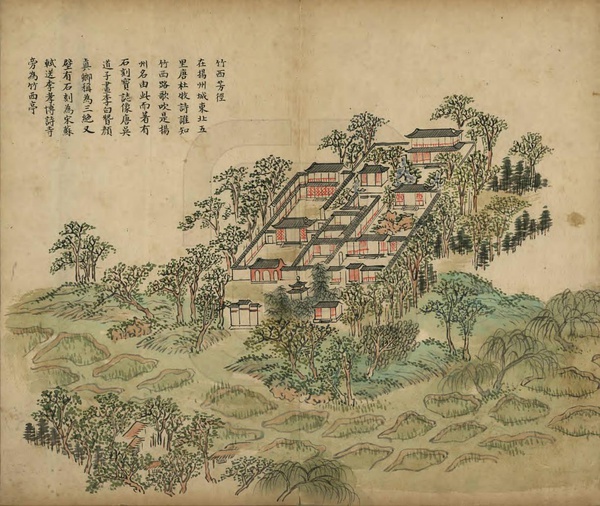 竹西芳徑
在揚州城東北五
里唐杜牧詩誰知
竹西路歌吹是揚
州名由此而著有
石刻寶誌像唐吳
道子畫李白贊顏
真卿稱為三絕又
壁有石刻為宋蘇
軾送李孝博詩寺
旁為竹西亭